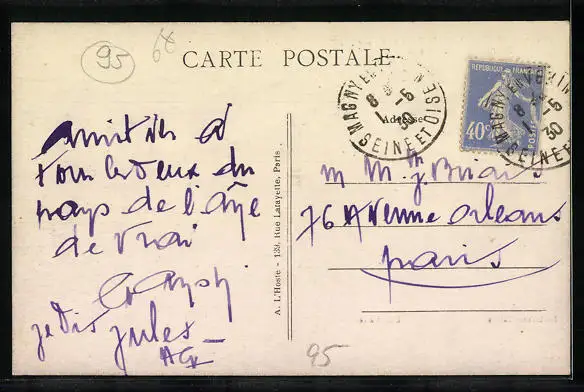 95
68
CARTE POSTALE
Adresse
MAGNY EN VEXIN
8 - 5
30
SEINE ET OISE
REPUBLIQUE FRANÇAISE
40c
POSTES
MAGNY EN VEXIN
8 - 5
30
SEINE ET OISE
amitiés à
Tous les deux du
pays de l'âne
de Vrai
je Dis Jules
A. L'Hoste - 139, Rue Lafayette, Paris
M Mth J.
76 Avenue Orleans
paris
95